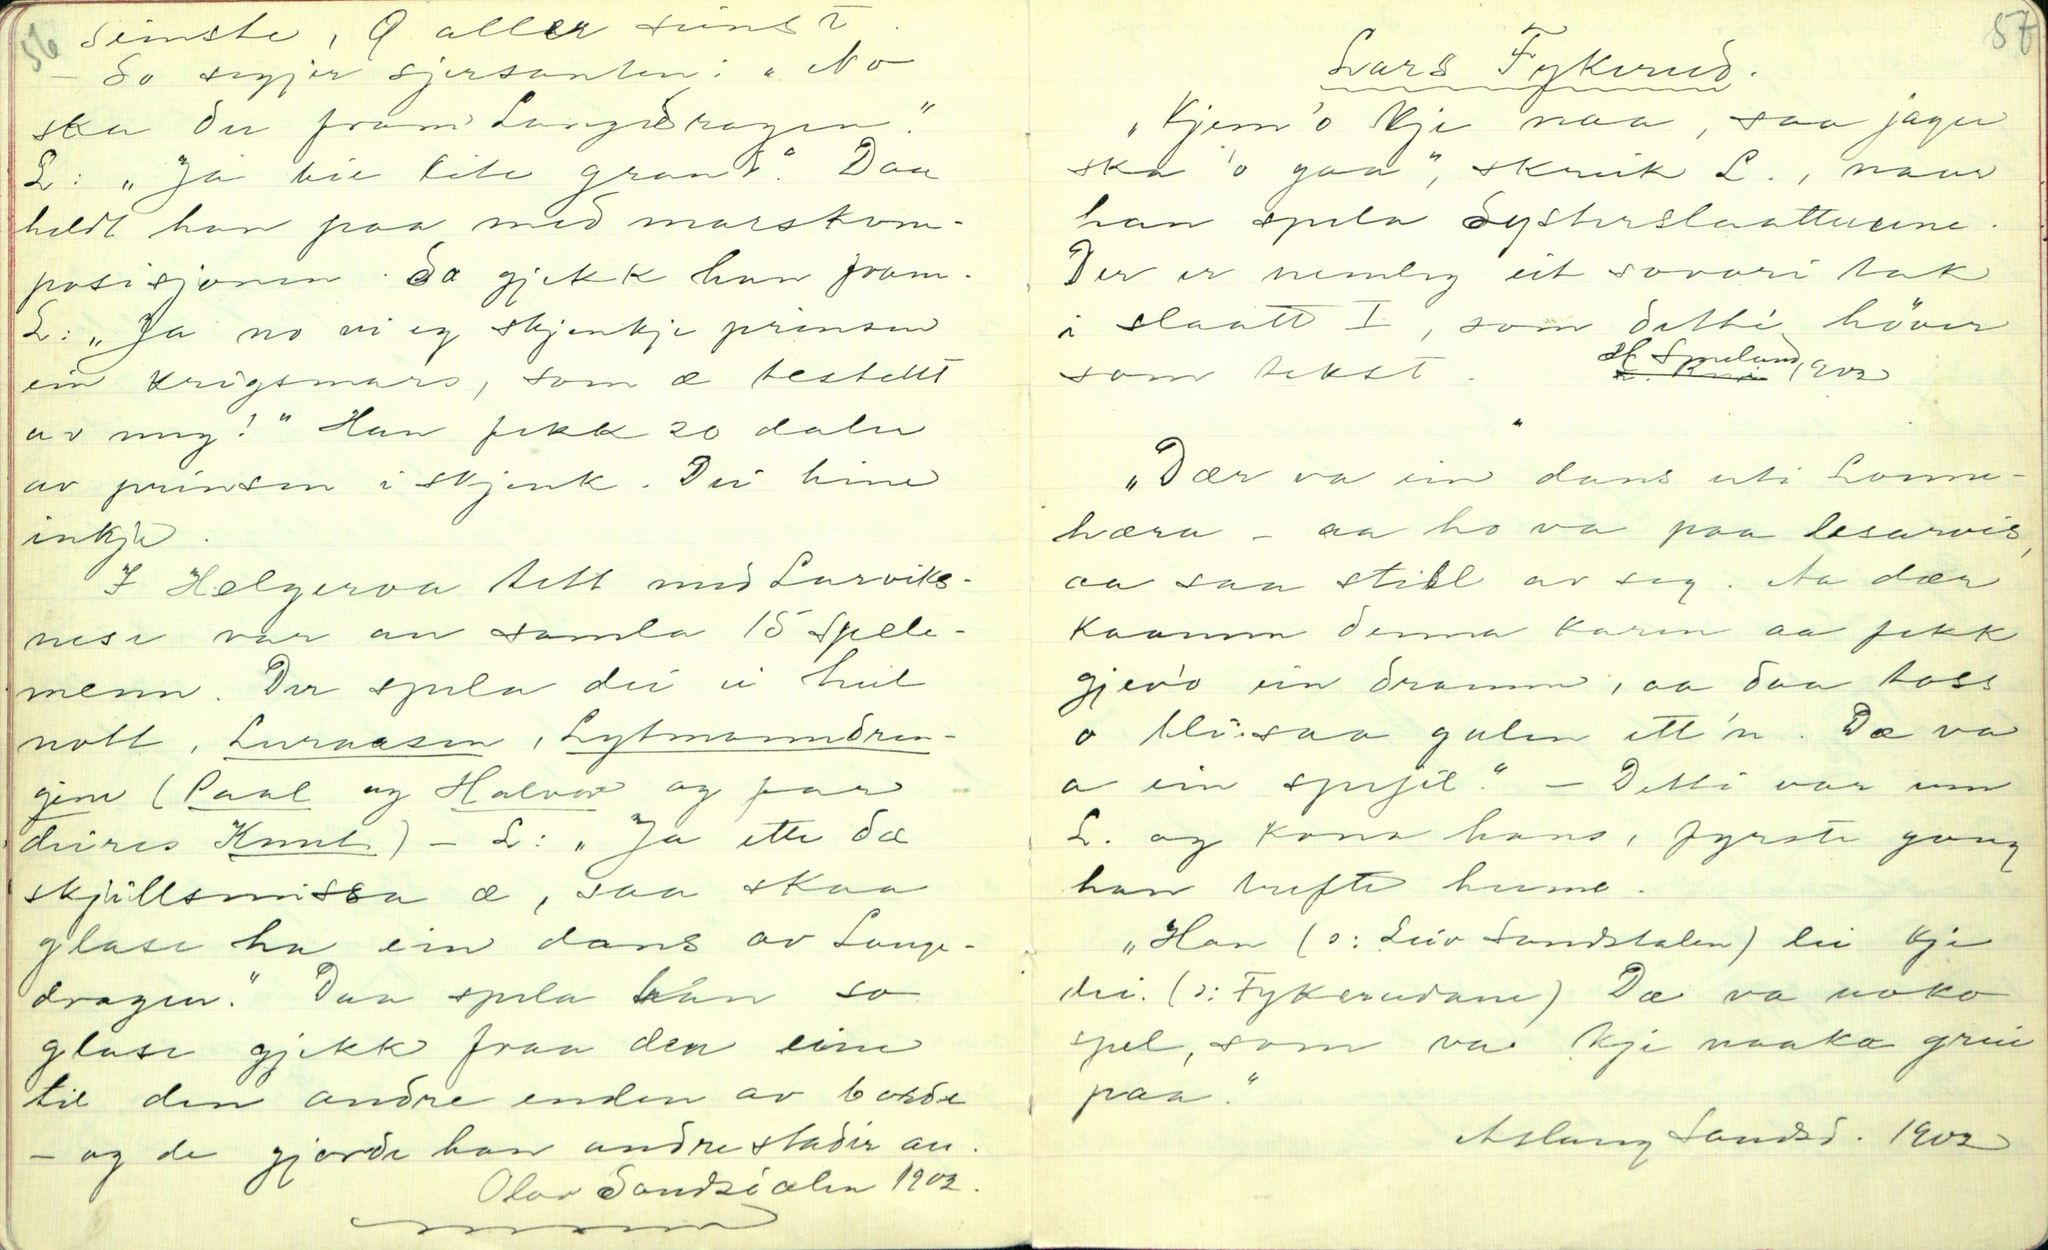 56
simste, Q aller sinst.
- So segjer sjersanten: „No
ska du fram Langedragen."
L: „Ja bie lite grand". Daa
heldt han paa med marskom-
posisjonen. So gjekk han fram.
L: „Ja no vi eg skjenkje prinsen
ein krigsmars, som æ testellt
av meg!" Han fekk 20 daler
av prinsen i skjenk. Dei hine
inkje.
I Helgeroa tett med Larviks-
nese var an samla 15 spele-
menn. Der spela dei ei heil
nott, Luraasen, Lytmanndren-
gjene (Paal og Halvor og far
deires Knut) - L: „Ja ette dæ
skjillsmissa æ, saa skaa
glase ha ein dans av Lange-
dragen." Daa spela han so
glase gjekk fraa den eine
til den andre enden av borde
- og de gjorde han andre stadir au.
Olav Sandsdalen 1902.
57
Lars Fykerud.
„Kjem 'o kje naa, saa jagu
ska 'o gaa", skreik L., naar
han spela Systerslaattuene.
Der er nemleg eit sovori tak
i slaatt I, som detti höver
som tekst. H. Spilund, 1902
"
„Dær va ein dans uti Lonne-
hæra - aa ho va paa lesarvis,
aa saa still av seg. Aa dær
kaamm denna karen aa fekk
gjev'o ein dramm, aa daa toss
o blei saa galen ett'n. Dæ va
a ein spejil." - Detti var um
L. og kona hans, fyrste gong
han trefte henne.
„Han (ɔ: Leiv Sandsdalen) lei kje
dei. (ɔ: Fykerudane) Dæ va noko
spel, som va kje naaka greie
paa."
Aslaug Sandsd. 1902